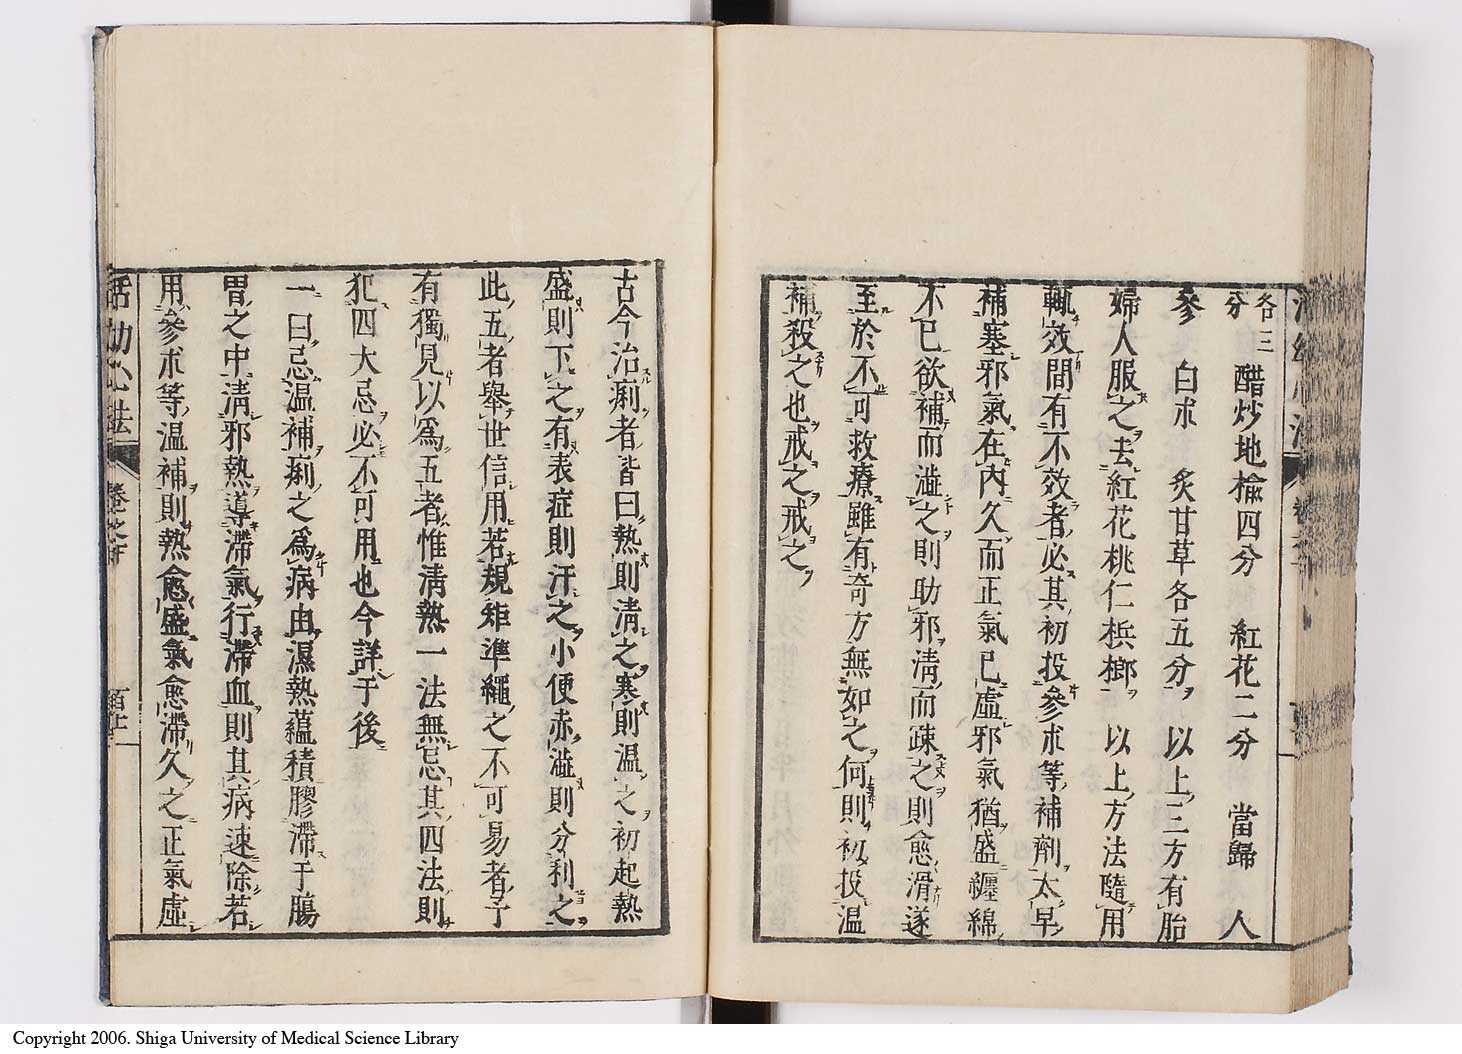 各三分 醋炒地榆四分 紅花二分 當歸 人
參 白朮 炙甘草各五分 以上三方有胎
婦人服之去紅花桃仁梹榔 以上方法隨用
輒效間有不效者必其初投參朮等補劑太早
補塞邪氣在內久而正氣已虛邪氣猶盛纏綿
不已欲補而澁之則助邪淸而疎之則愈滑遂
至於不可救療雖有奇方無如之何則初投温
補殺之也戒之戒之
古今治痢者皆曰熱則淸之寒則温之初起熱
盛則下之有表症則汗之小便赤澁則分利之
此五者舉世信用若規矩準繩之不可易者予
有獨見以爲五者惟淸熱一法無忌其四法則
犯四大忌必不可用也今詳于後
一曰忌温補痢之爲病由濕熱蘊積膠滯于腸
胃之中淸邪熱導滯氣行滯血則其病速除若
用參朮等温補則熱愈盛氣愈滯久之正氣虛
活幼心法 卷之